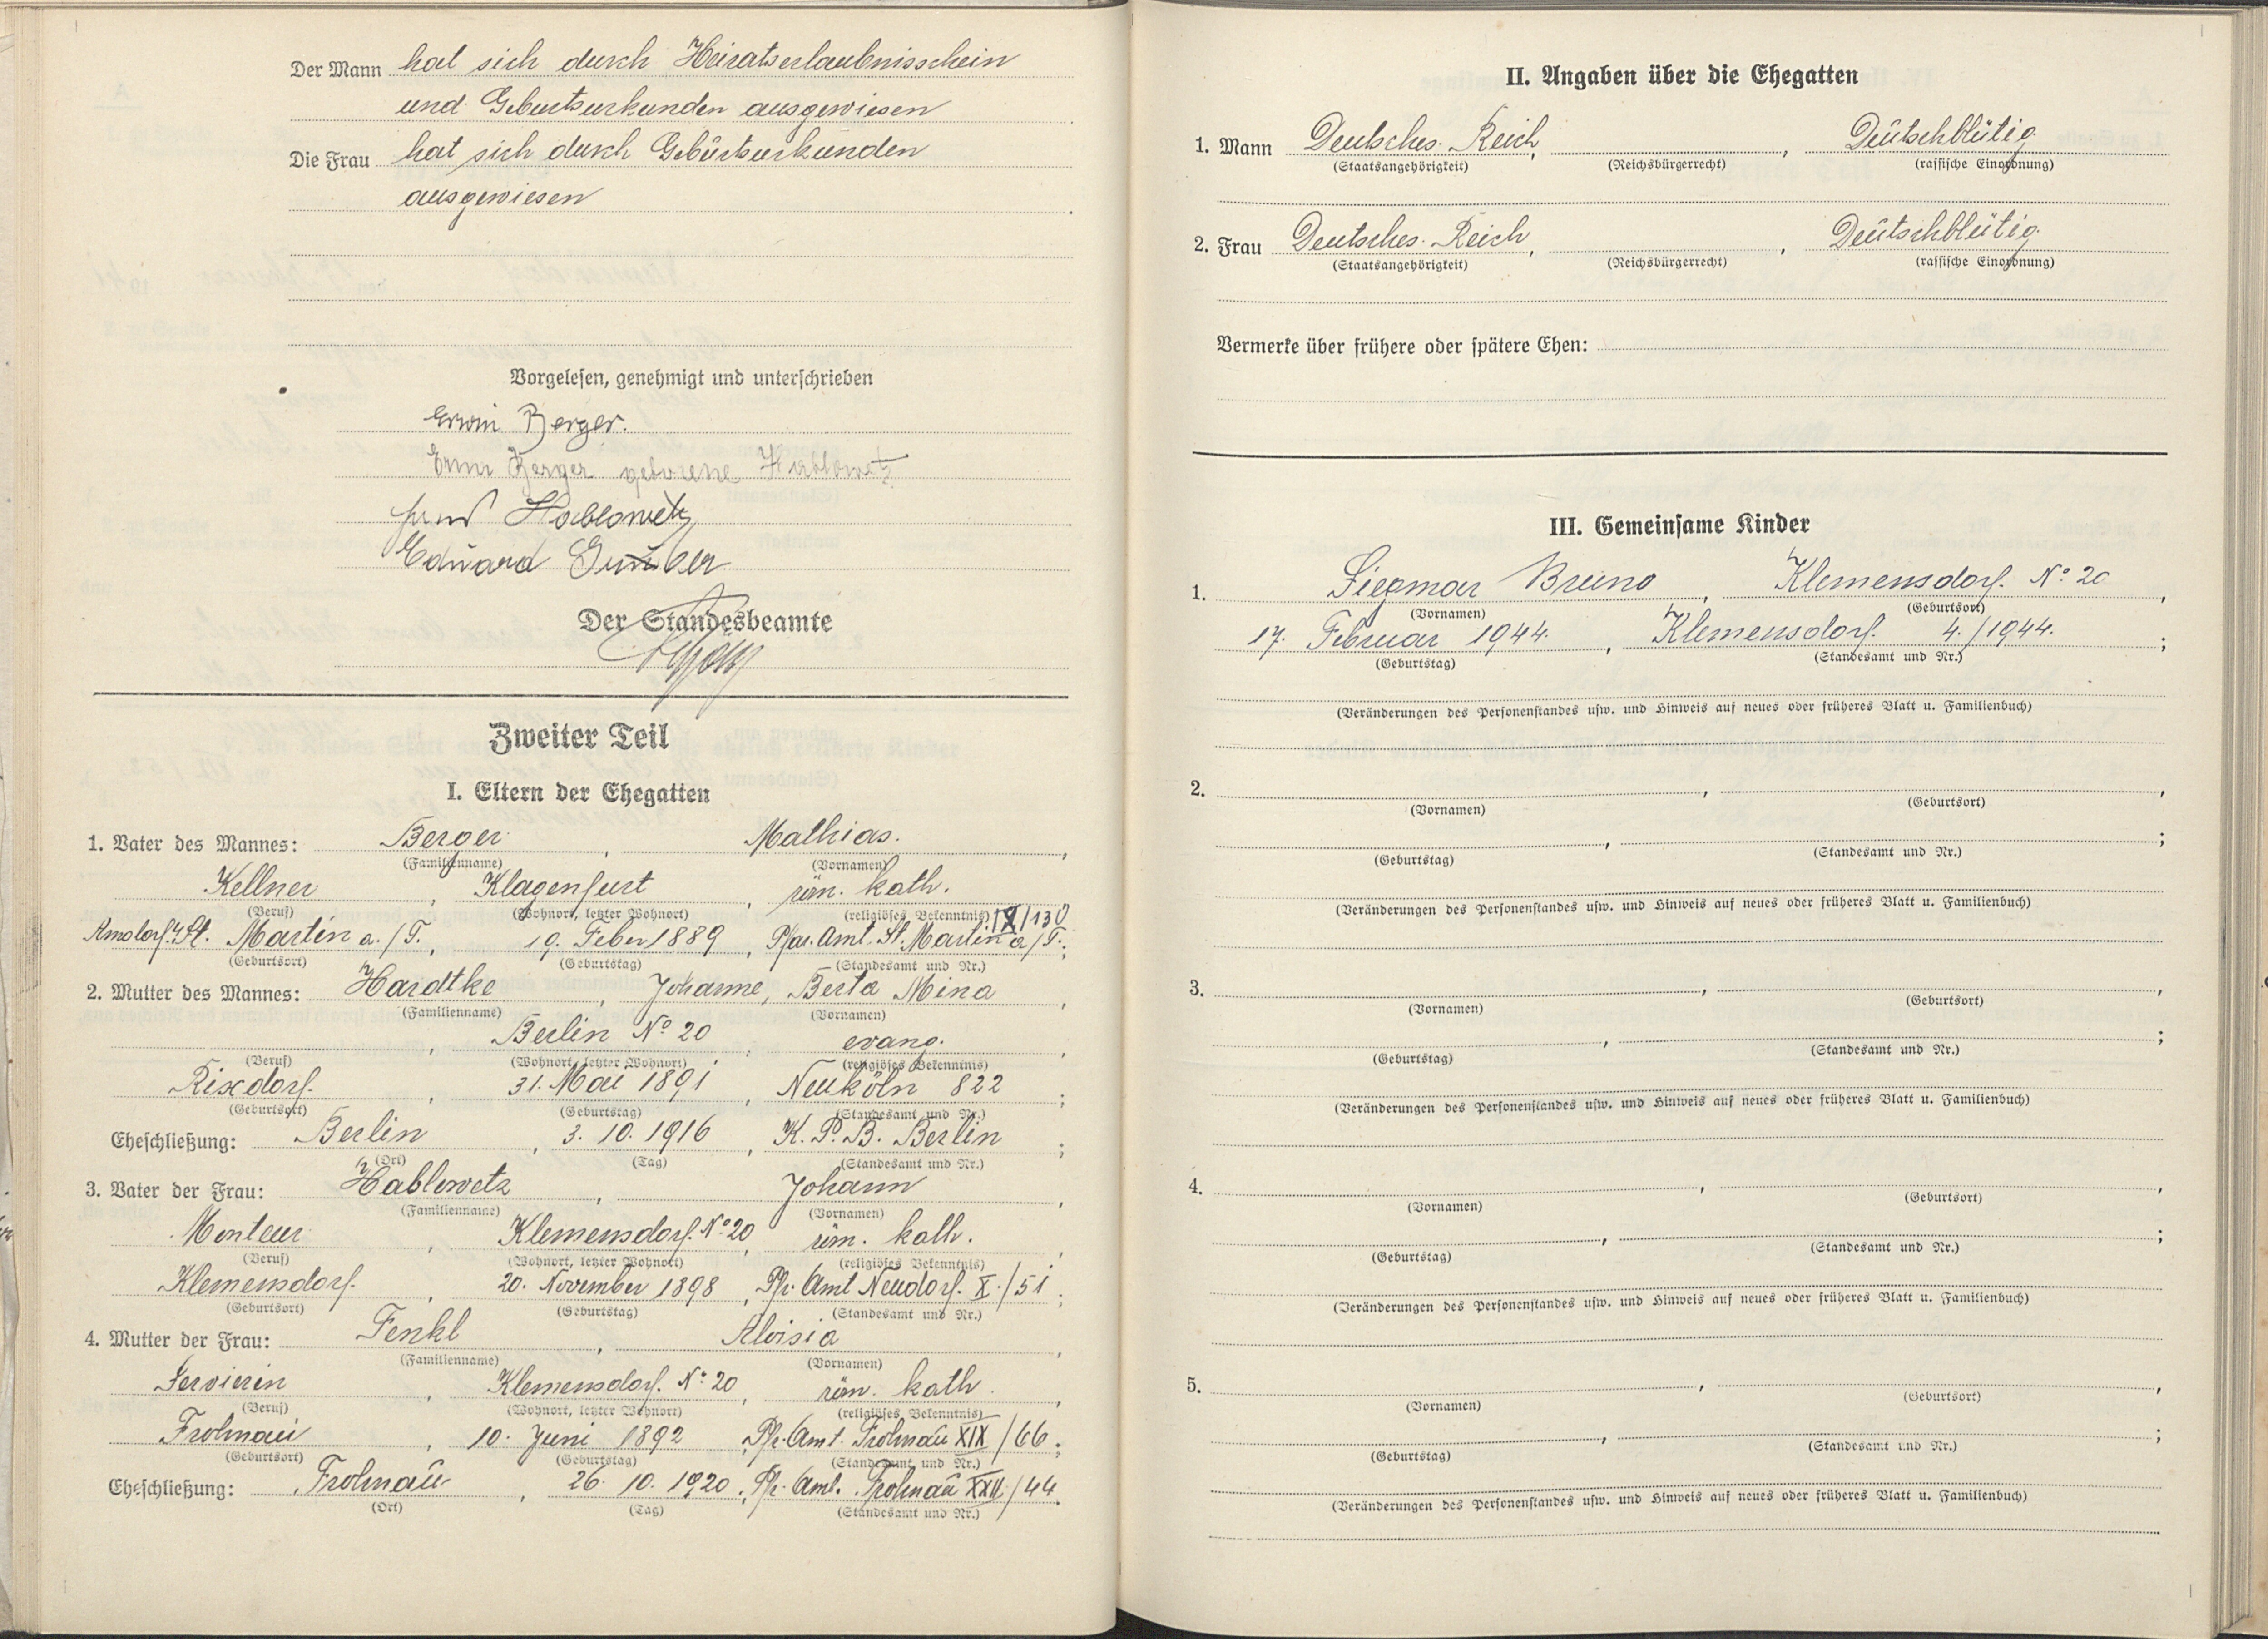 Der Mann hat sich durch Heiratserlaubnisschein
und Geburtsurkunden ausgewiesen.
Die Frau hat sich durch Geburtsurkunden
ausgewiesen.
Vorgelesen, genehmigt und unterschrieben
Erwin Berger.
Berger geborene Hablowetz
Hablowetz
Eduard
Der Standesbeamte
Zweiter Teil
I. Eltern der Ehegatten
1. Vater des Mannes: Berger, Mathias.,
(Familienname) (Vornamen)
Kellner, Klagenfurt, röm. kath.
(Beruf) (Wohnort, letzter Wohnort) (religiöses Bekenntnis)
St. Martin a./T., 19. Feber 1889, Pfar. Amt. St. Martin a/T. IX/130;
(Geburtsort) (Geburtstag) (Standesamt und Nr.)
2. Mutter des Mannes: Hardtke, Johanne, Berta Mina,
(Familienname) (Vornamen)
, Berlin No 20, evang.,
(Beruf) (Wohnort, letzter Wohnort) (religiöses Bekenntnis)
Rixdorf., 31. Mai 1891, Neuköln 822;
(Geburtsort) (Geburtstag) (Standesamt und Nr.)
Eheschließung: Berlin, 3. 10. 1916, K. P. B. Berlin;
(Ort) (Tag) (Standesamt und Nr.)
3. Vater der Frau: Hablowetz, Johann,
(Familienname) (Vornamen)
Monteur, Klemensdorf. No 20, röm. kath.,
(Beruf) (Wohnort, letzter Wohnort) (religiöses Bekenntnis)
Klemensdorf., 20. November 1898, Pfr. Amt Neudorf. X./51;
(Geburtsort) (Geburtstag) (Standesamt und Nr.)
4. Mutter der Frau: Fenkl, Aloisia,
(Familienname) (Vornamen)
Servierin, Klemensdorf. No 20, röm. kath.,
(Beruf) (Wohnort, letzter Wohnort) (religiöses Bekenntnis)
Frohnau, 10. Juni 1892, Pfr. Amt. Frohnau XIX/66;
(Geburtsort) (Geburtstag) (Standesamt und Nr.)
Eheschließung: Frohnau, 26. 10. 1920, Pfr. Amt. Frohnau XXII/44.
(Ort) (Tag) (Standesamt und Nr.)
II. Angaben über die Ehegatten
1. Mann Deutsches Reich, , Deutschblütig
(Staatsangehörigkeit) (Reichsbürgerrecht) (rassische Einordnung)
2. Frau Deutsches Reich, , Deutschblütig
(Staatsangehörigkeit) (Reichsbürgerrecht) (rassische Einordnung)
Vermerke über frühere oder spätere Ehen:
III. Gemeinsame Kinder
1. Siegmar Bruno, Klemensdorf. No 20,
(Vornamen) (Geburtsort)
17. Februar 1944., Klemensdorf. 4./1944.;
(Geburtstag) (Standesamt und Nr.)
(Veränderungen des Personenstandes usw. und Hinweis auf neues oder früheres Blatt u. Familienbuch)
2. , ,
(Vornamen) (Geburtsort)
, ;
(Geburtstag) (Standesamt und Nr.)
(Veränderungen des Personenstandes usw. und Hinweis auf neues oder früheres Blatt u. Familienbuch)
3. , ,
(Vornamen) (Geburtsort)
, ;
(Geburtstag) (Standesamt und Nr.)
(Veränderungen des Personenstandes usw. und Hinweis auf neues oder früheres Blatt u. Familienbuch)
4. , ,
(Vornamen) (Geburtsort)
, ;
(Geburtstag) (Standesamt und Nr.)
(Veränderungen des Personenstandes usw. und Hinweis auf neues oder früheres Blatt u. Familienbuch)
5. , ,
(Vornamen) (Geburtsort)
, ;
(Geburtstag) (Standesamt und Nr.)
(Veränderungen des Personenstandes usw. und Hinweis auf neues oder früheres Blatt u. Familienbuch)